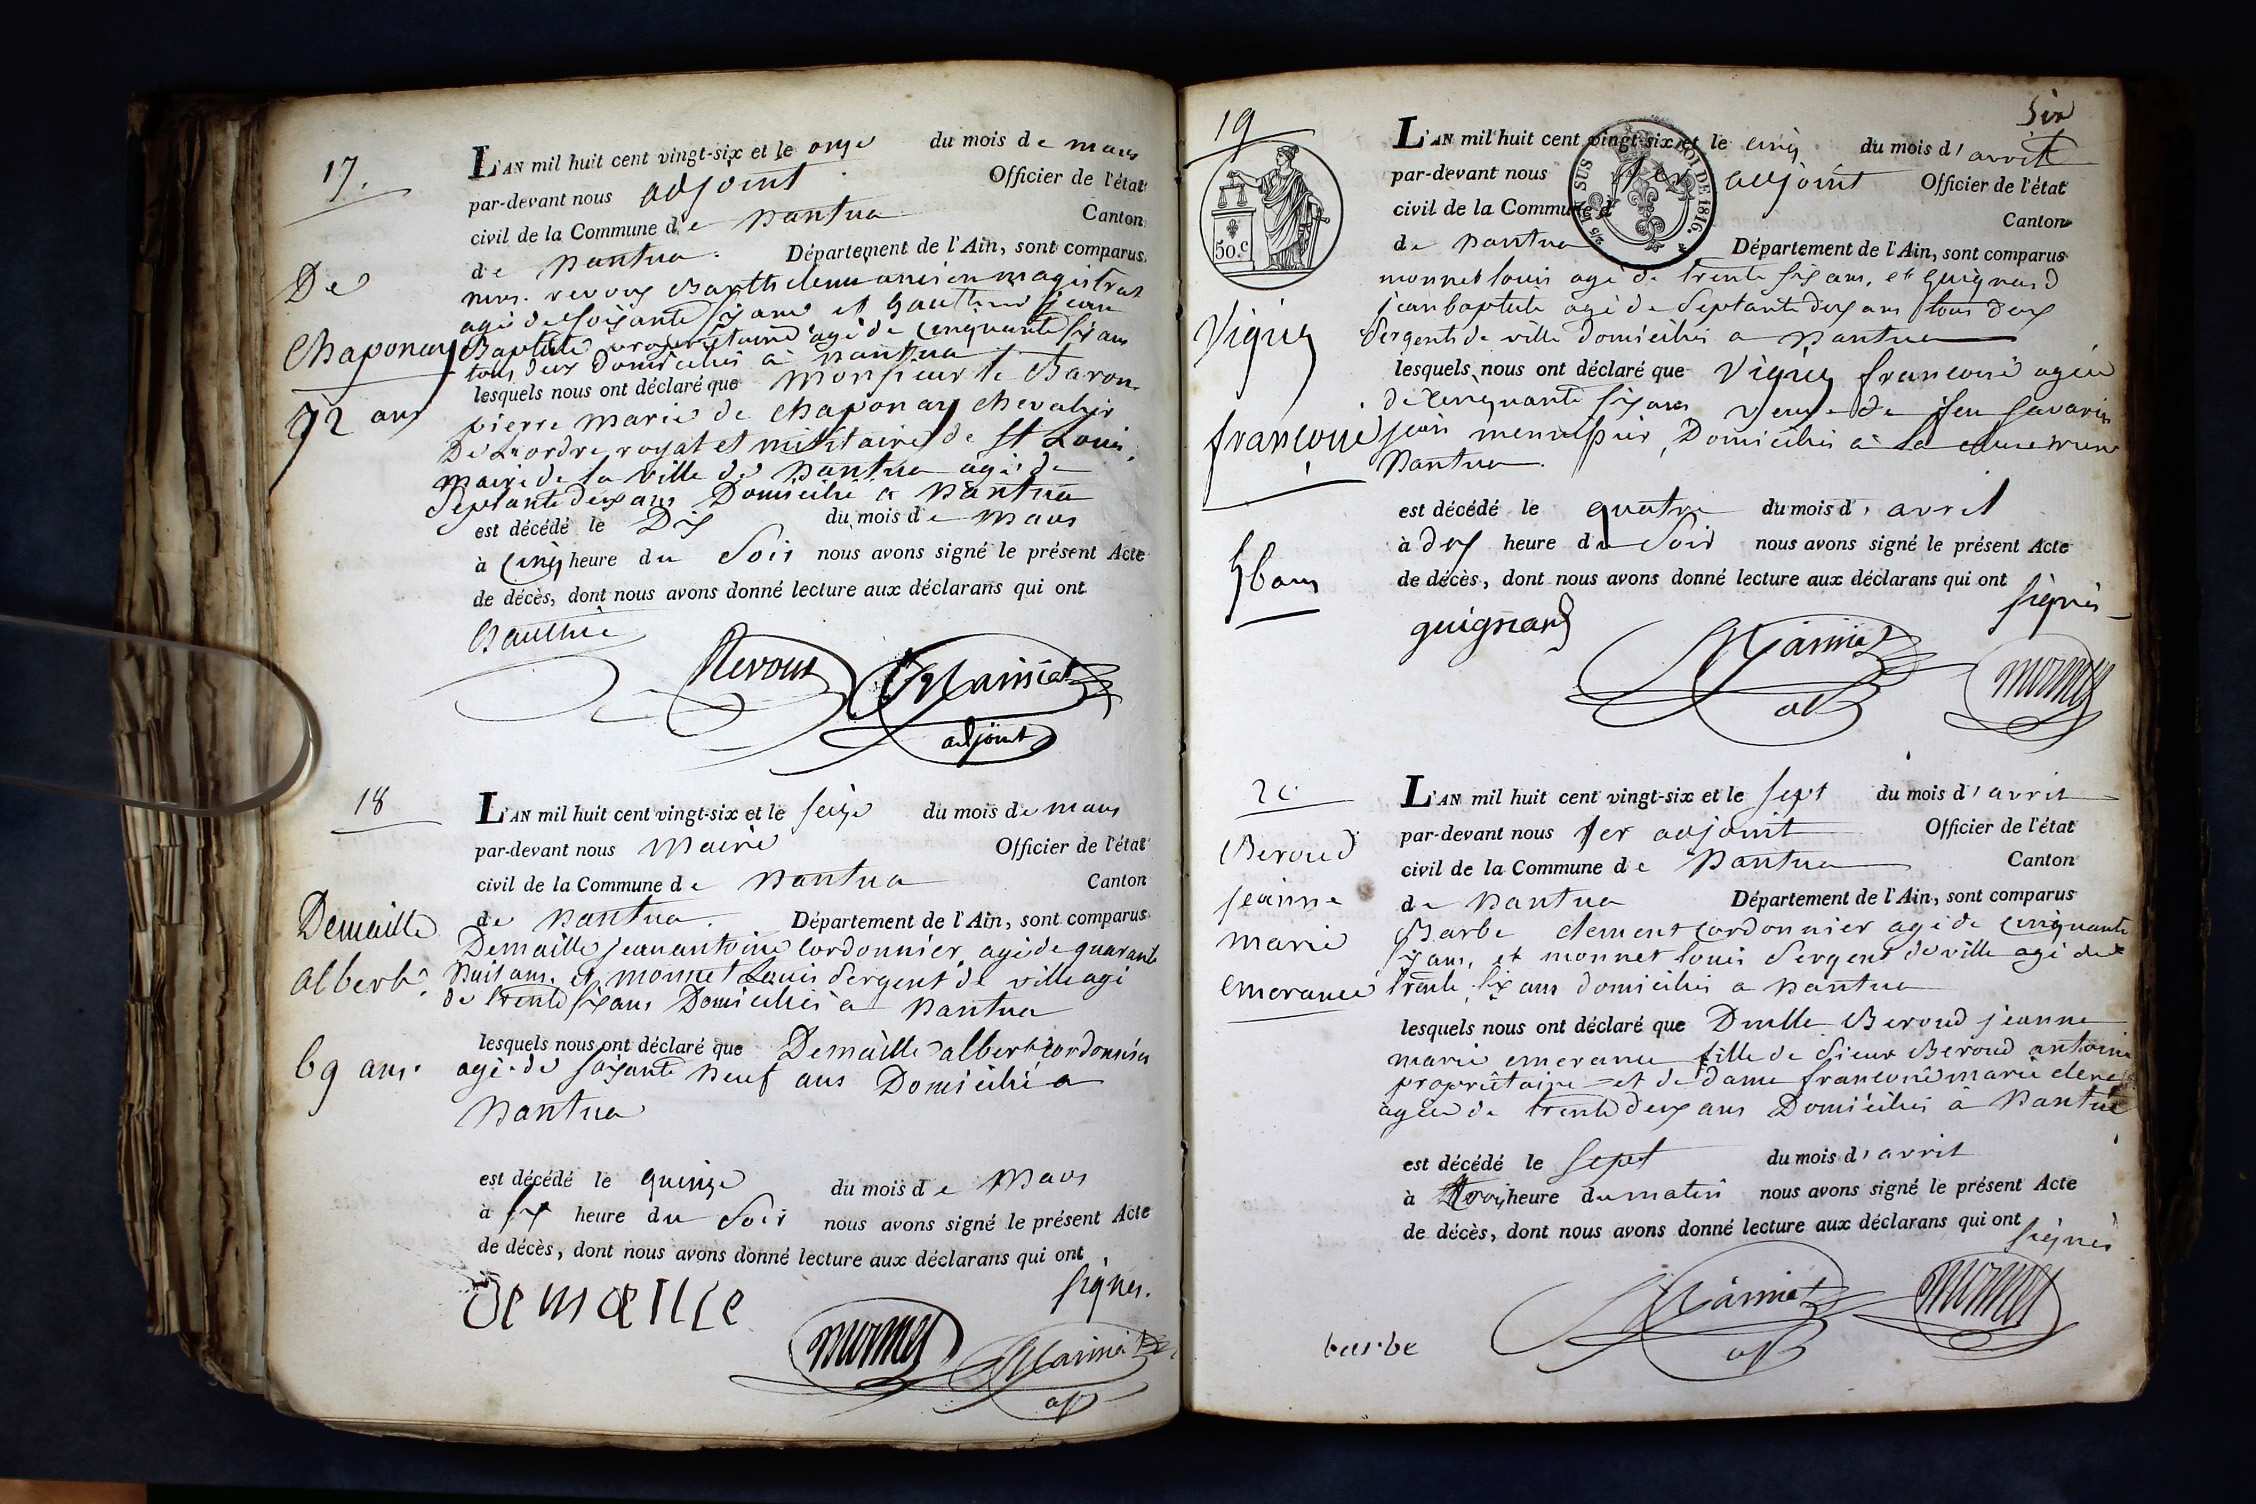 17.
L'AN mil huit cent vingt-six et le onze du mois de mars
par-devant nous adjoint Officier de l'état
civil de la Commune de nantua Canton
de nantua. Département de l'Ain, sont comparus
mrs. revoux Barthelemi ancien magistrat
agé de soixante six ans et Gauthier jean
Baptiste propriétaire agé de cinquante six ans
tous deux domiciliés à nantua
lesquels nous ont déclaré que Monsieur le Baron
pierre marie de chaponay chevalier
De l'ordre royal et militaire de st Louis,
maire de la ville de nantua agé de
Septante deux ans Domicilié à nantua
est décédé le Dix du mois de mars
à cinq heure du Soir nous avons signé le présent Acte
de décès, dont nous avons donné lecture aux déclarans qui ont
De
chaponay
72 ans
Revoux
adjoint
18
L'AN mil huit cent vingt-six et le seize du mois de mars
par-devant nous Maire Officier de l'état
civil de la Commune de nantua Canton
de nantua. Département de l'Ain, sont comparus
Demaille jean antoine Cordonnier, agé de quarante
huit ans, et monnet Louis Sergent de ville agé
de trente six ans Domiciliés à nantua
lesquels nous ont déclaré que Demaille albert cordonnier
agé de soixante neuf ans Domicilié a
nantua
est décédé le quinze du mois de Mars
à six heure du Soir nous avons signé le présent Acte
de décès, dont nous avons donné lecture aux déclarans qui ont
signes.
Demaille
albert.
69 ans.
demaille
monnet
19
Six
50.c
EN SUS
LOI DE 1816.
L'AN mil huit cent vingt-six et le cinq du mois d'avril
par-devant nous 1er adjoint Officier de l'état
civil de la Commune d Canton
de nantua Département de l'Ain, sont comparus
monnet louis agé de trente six ans, et guignard
jean baptiste agé de Septante deux ans tous deux
Sergents de ville Domiciliés a nantua
lesquels nous ont déclaré que Viguez francoise agée
de cinquante six ans veuve de feu Savarin
jean menuisier, Domiciliés à
nantua.
est décédé le quatre du mois d'avril
à dix heure du Soir nous avons signé le présent Acte
de décès, dont nous avons donné lecture aux déclarans qui ont
signés
Viguez
francoise
56 ans
guignard
monnet
20
L'AN mil huit cent vingt-six et le sept du mois d'avril
par-devant nous 1er adjoint Officier de l'état
civil de la Commune de nantua Canton
de nantua Département de l'Ain, sont comparus
Barbe clement cordonnier agé de cinquante
six ans, et monnet louis Sergent de ville agé de
trente six ans domiciliés a nantua
lesquels nous ont déclaré que Dmlle Beroud jeanne
marie emerance fille de Sieur Beroud antoine
propriétaire et de dame francoise marie
agée de trente deux ans Domiciliés à nantua
est décédé le sept du mois d'avril
à trois heure du matin nous avons signé le présent Acte
de décès, dont nous avons donné lecture aux déclarans qui ont
signés
Beroud
jeanne
marie
emerance
barbe
monnet